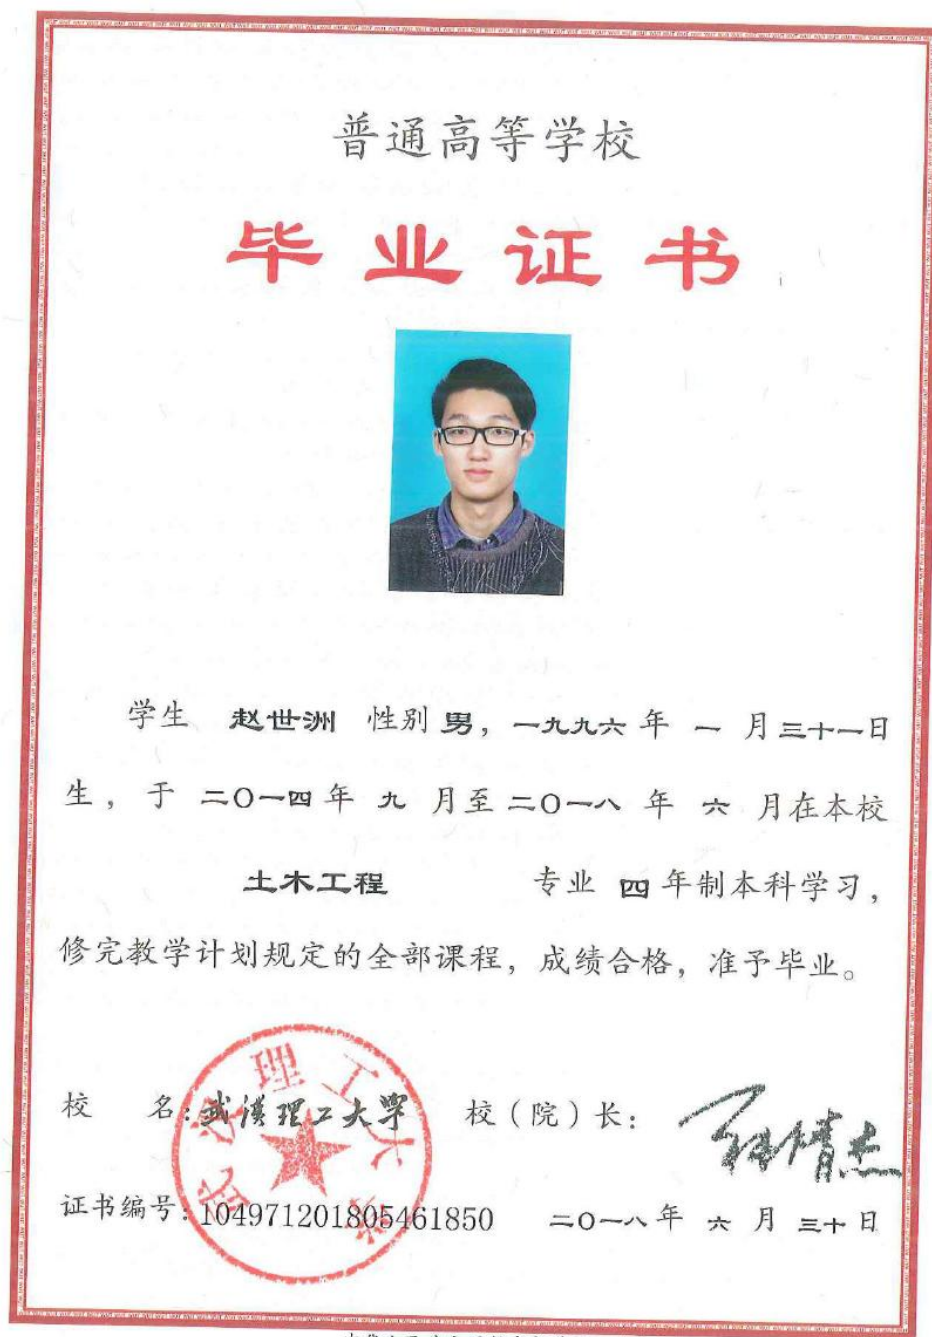 普通高等学校
毕业证书
学生 赵世洲 性别 男，一九九六 年 一 月 三十一日
生，于 二〇一四 年 九 月至 二〇一八 年 六 月在本校
土木工程 专业 四 年制本科学习，
修完教学计划规定的全部课程，成绩合格，准予毕业。
校 名：武汉理工大学 校（院）长：
武汉理工大学
证书编号：104971201805461850 二〇一八 年 六 月 三十 日